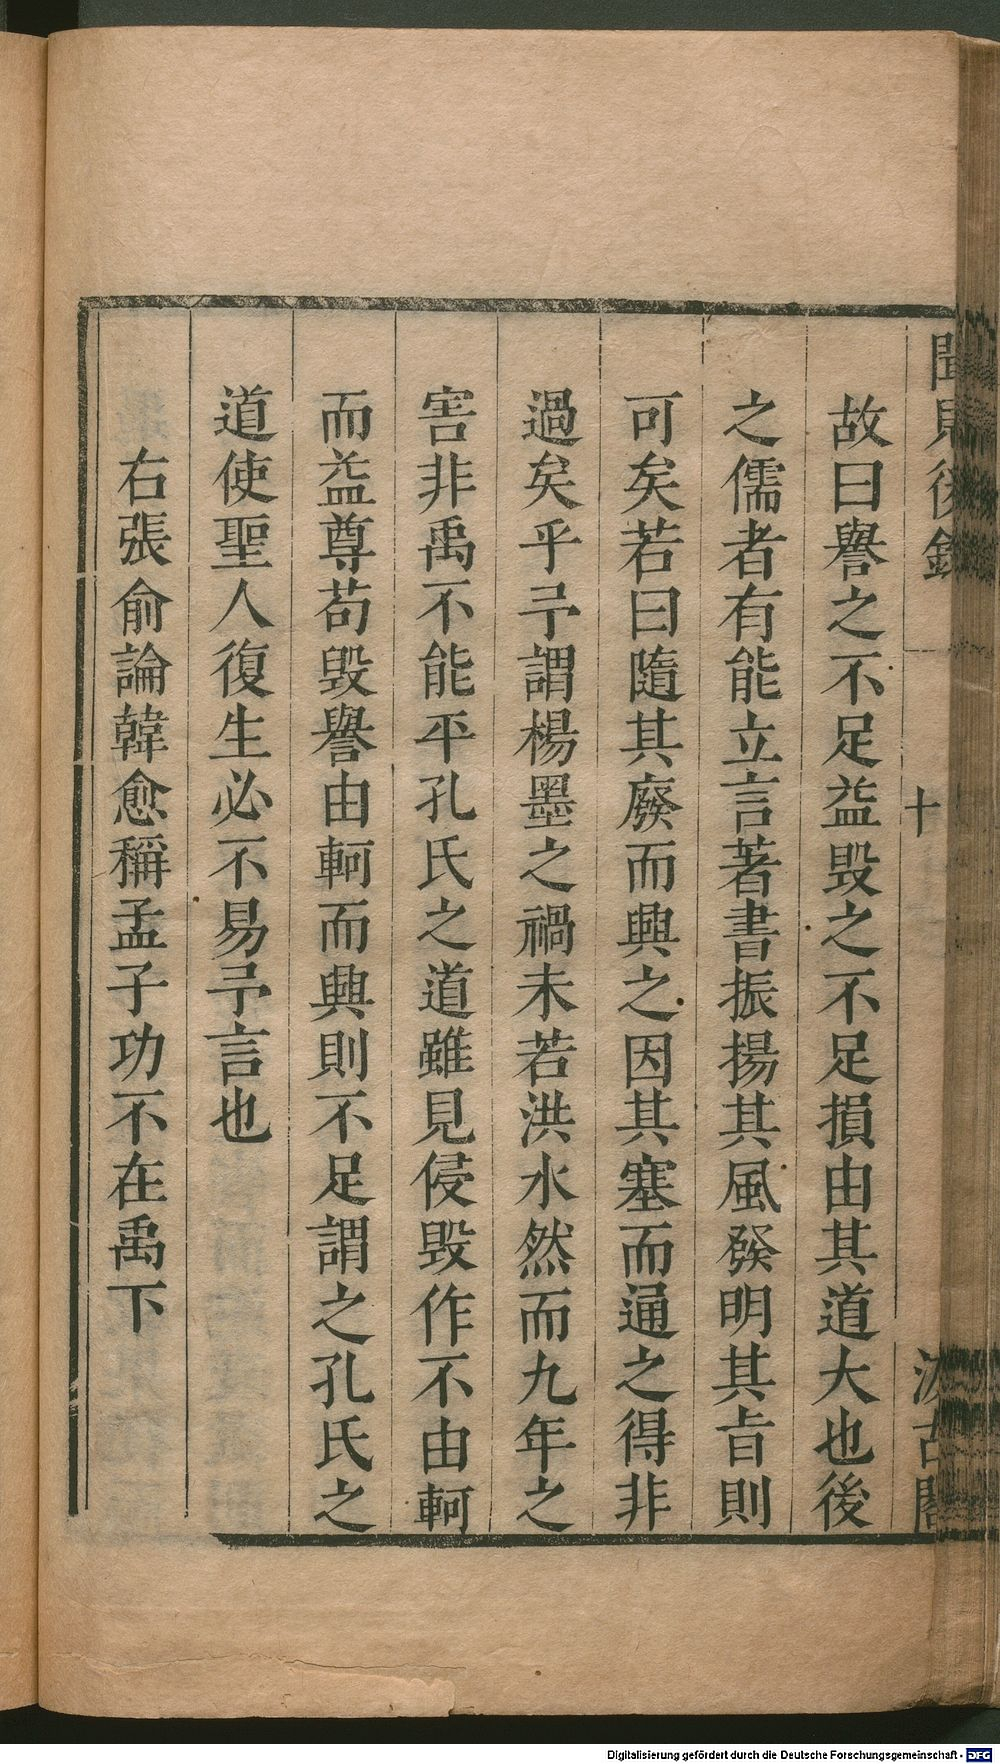 聞見後錄
十
汲古閣
故曰譽之不足益毁之不足損由其道大也後
之儒者有能立言著書振揚其風發明其旨則
可矣若曰隨其廢而興之因其塞而通之得非
過矣乎予謂楊墨之禍未若洪水然而九年之
害非禹不能平孔氏之道雖見侵毁作不由軻
而益尊苟毁譽由軻而興則不足謂之孔氏之
道使聖人復生必不易予言也
右張俞論韓愈稱孟子功不在禹下
Digitalisierung gefördert durch die Deutsche Forschungsgemeinschaft - DFG